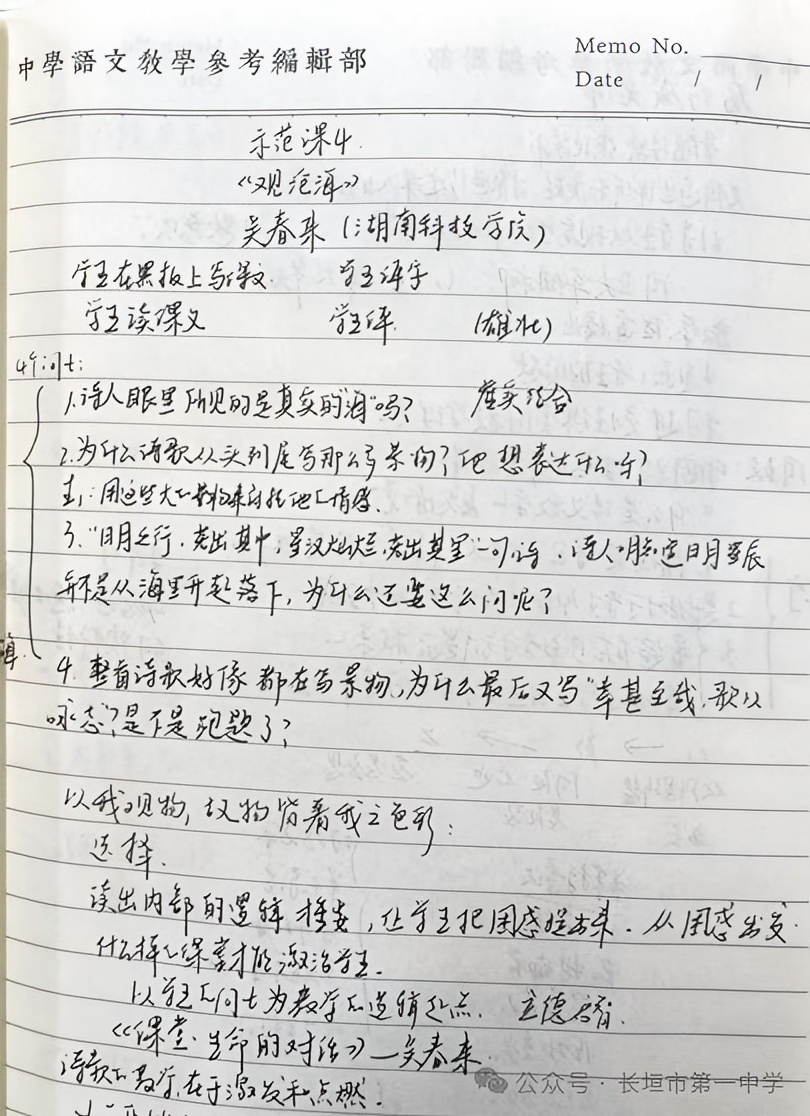 中學語文教學參考編輯部
Memo No.
Date / /
示范课4.
《观沧海》
吴春来(湖南科技学院)
学生在黑板上写课文. 学生评字
学生读课文 学生评. (雄壮)
4个问士:
1.诗人眼里所见的是真实的"海"吗? 虚实结合
2.为什么诗歌从头到尾写那么多景物?他想表达什么呢?
生1:用这些大的景物来寄托他的情感.
3."日月之行,若出其中,星汉灿烂,若出其里"一句话,诗人明知道日月星辰
并不是从海里升起落下,为什么还要这么问呢?
4.整首诗歌好像都在写景物,为什么最后又写"幸甚至哉,歌以
咏志"?是不是跑题了?
以我观物,故物皆着我之色彩:
选择.
读出内部的逻辑推委,让学生把困惑提出来.从困惑出发.
什么样的课堂才能激活学生.
以学生的问士为教学的逻辑起点. 立德启智.
《课堂·生命的对话》—吴春来
诗歌的教学在于激发和点燃.
公众号·长垣市第一中学